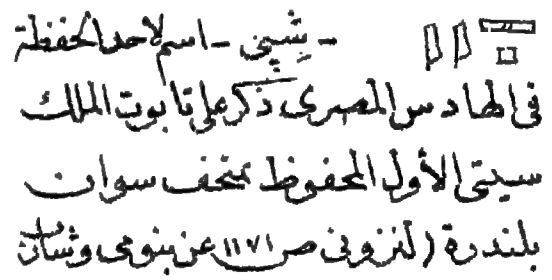 - شيپي - اسم لأحد الحفظة
فى الهادس المصرى ذكر على تابوت الملك
سيتى الأول المحفوظ بمتحف سوان
بلندرة (لنزونى ص ١١٧١ عن بنومى وشارب